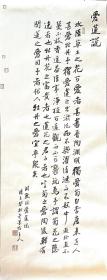 愛蓮說
水陸草木之花可愛者甚蕃晉陶淵明獨愛菊自李唐來世人
甚愛牡丹予獨愛蓮之出淤泥而不染濯清漣而不妖中通外直
不蔓不枝香遠益清亭亭淨植可遠觀而不可褻玩焉予謂菊
花之隱逸者也牡丹花之富貴者也蓮花之君子者也噫菊之愛陶後鮮有
聞蓮之愛同予者何人牡丹之愛宜乎眾矣